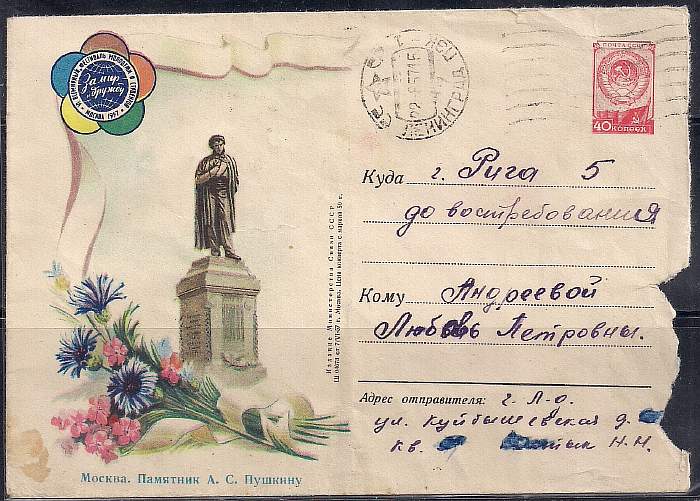 VI ВСЕМИРНЫЙ ФЕСТИВАЛЬ МОЛОДЕЖИ И СТУДЕНТОВ
За мир и дружбу
МОСКВА 1957
СССР
ЛЕНИНГРАД
ПОЧТА СССР
40 КОПЕЕК
Куда г. Рига 5
до востребования
Кому Андреевой
Любовь Петровны.
Адрес отправителя: г. Л-д.
ул. Куйбышевская д.
кв. Н.Н.
Издание Министерства Связи СССР
Москва. Цена конверта с маркой 50 к.
Москва. Памятник А. С. Пушкину